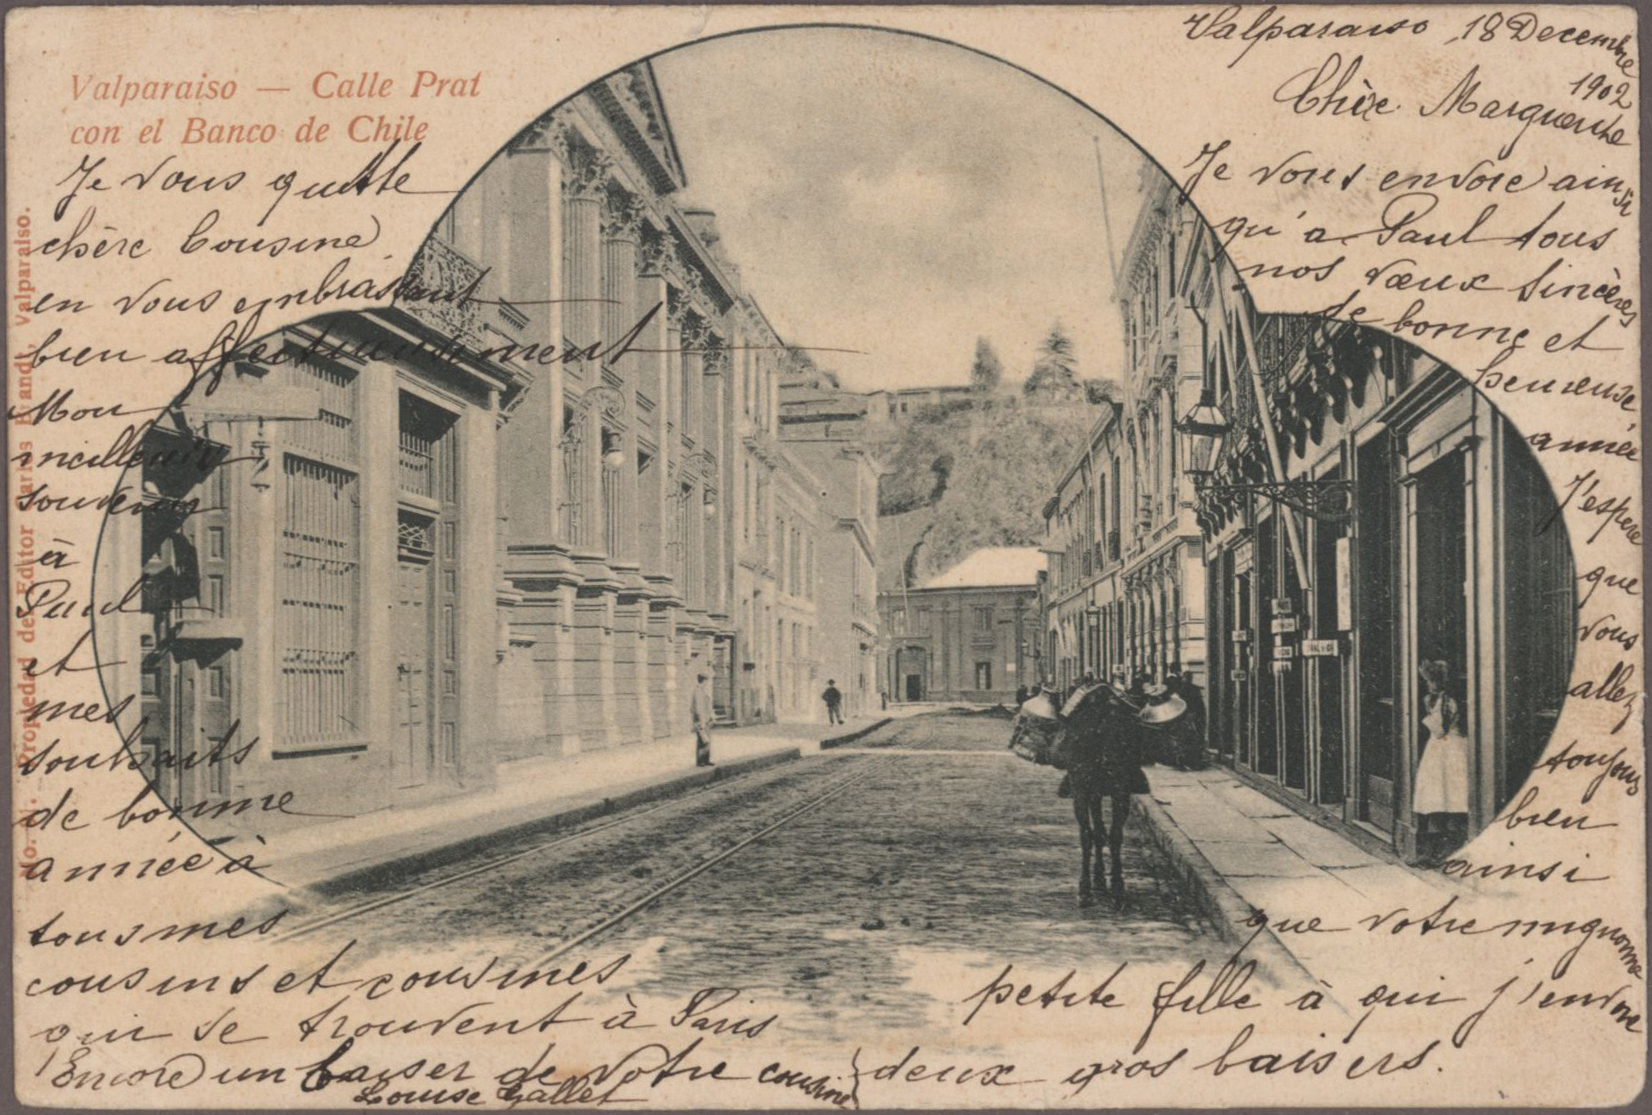 Valparaiso — Calle Prat
con el Banco de Chile
Valparaiso 18 Decembre
1902
Chère Marguerite
Je vous envoie ainsi
qu'a Paul tous
nos vœux sincères
de bonne et
heureuse
année
J'espère
que
vous
allez
toujours
bien
ainsi
que votre mignonne
petite fille à qui j'envoie
deux gros baisers.
Je vous quitte
chère Cousine
en vous embrassant
bien affectueusement
Mon
meilleur
souvenir
à
Paul
et
mes
souhaits
de bonne
année à
tous mes
cousins et cousines
qui se trouvent à Paris
Encore un baiser de votre cousine
Louise Gallet
Propiedad del Editor Carlos Brandt, Valparaiso.